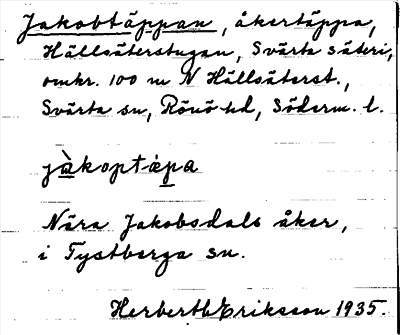 Jakobtäppan, åkertäppa,
Hällsäterstugan, Svärta säteri,
omkr. 100 m N Hällsäterst.,
Svärta sn, Rönö hd, Söderm. l.
jàkoptäpa
Nära Jakobsdals åker,
i Tystberga sn.
Herbert Eriksson 1935.